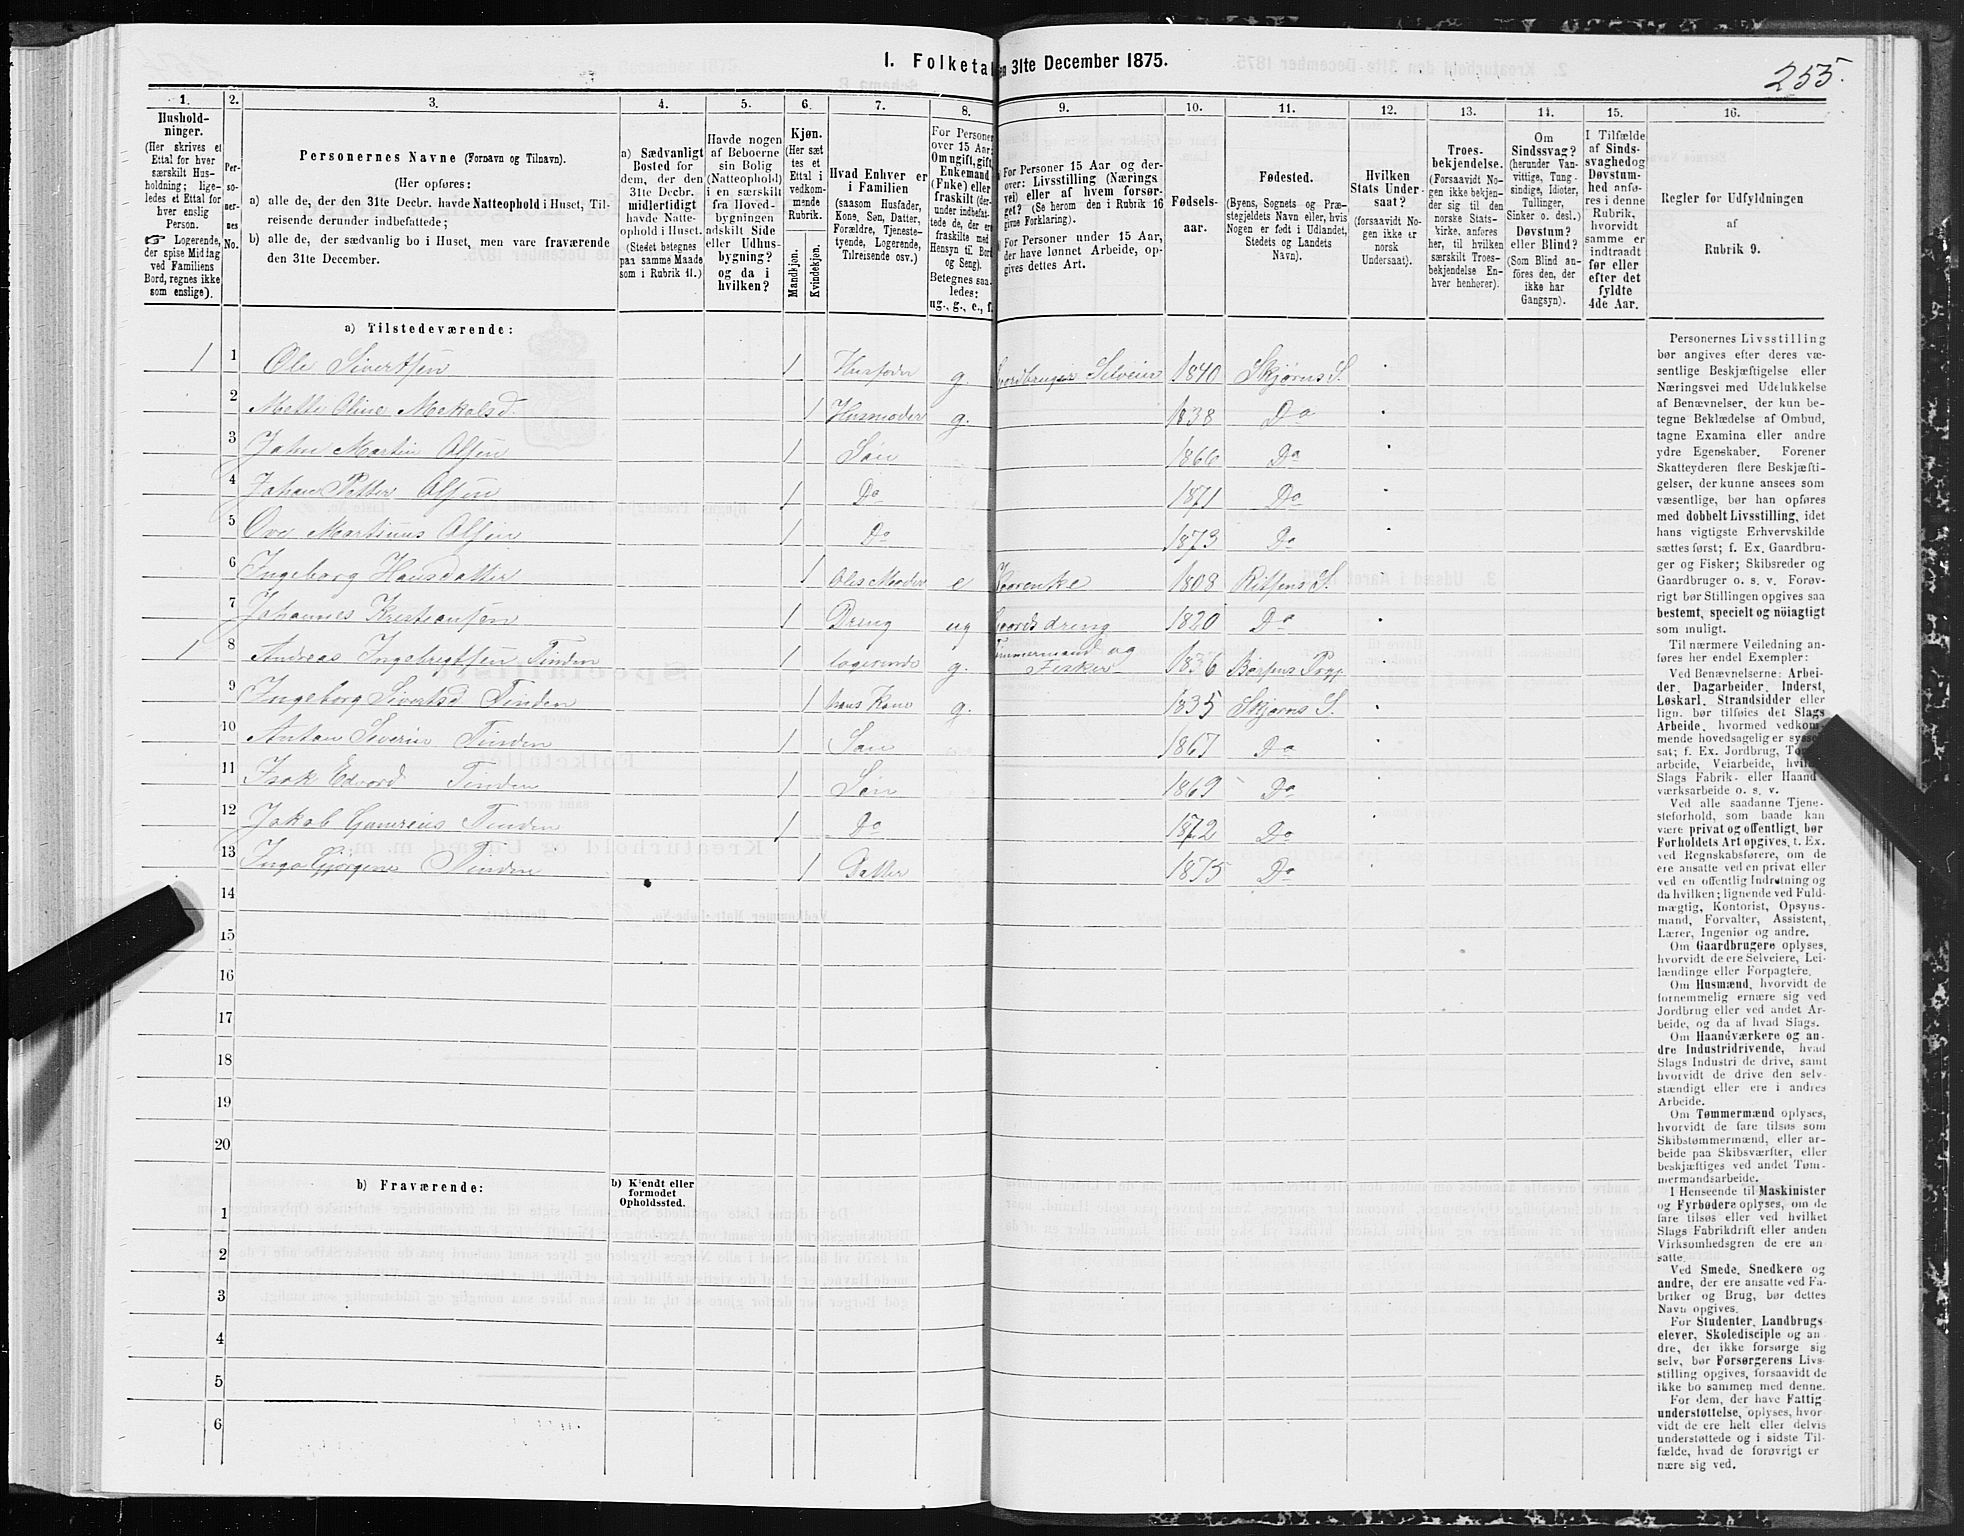 1. Folketal den 31te December 1875.
255.
1. 2. 3. 4. 5. 6. 7. 8. 9. 10. 11. 12. 13. 14. 15. 16.
Hushold-
ninger.
(Her skrives et
Ettal for hver
særskilt Hus-
holdning; lige-
ledes et Ettal for
hver enslig
Person.
☞ Logerende,
der spise Middag
ved Familiens
Bord, regnes ikke
som enslige).
Per-
so-
ner-
nes
No.
Personernes Navne (Fornavn og Tilnavn).
(Her opføres:
a) alle de, der den 31te Decbr. havde Natteophold i Huset, Til-
reisende derunder indbefattede;
b) alle de, der sædvanlig bo i Huset, men vare fraværende
den 31te December.
a) Sædvanligt
Bosted for
dem, der den
31te Decbr.
midlertidigt
havde Natte-
ophold i Huset.
(Stedet betegnes
paa samme Maade
som i Rubrik 11.)
Havde nogen
af Beboerne
sin Bolig
(Natteophold)
i en særskilt
fra Hoved-
bygningen
adskilt Side
eller Udhus-
bygning?
og da i
hvilken?
Kjøn.
(Her sæt-
tes et
Ettal i
vedkom-
mende
Rubrik.
Mandkjøn.
Kvindekjøn.
Hvad Enhver er
i Familien
(saasom Husfader,
Kone, Søn, Datter,
Forældre, Tjeneste-
tyende, Logerende,
Tilreisende osv.)
For Personer
over 15 Aar:
Om ugift, gift,
Enkemand
(Enke) eller
fraskilt (der-
under indbefat-
tede de, der ere
fraskilte med
Hensyn til Bord
og Seng).
Betegnes saa-
ledes:
ug., g., e., f.
For Personer 15 Aar og der-
over: Livsstilling (Nærings-
vei) eller af hvem forsør-
get? (Se herom den i Rubrik 16
givne Forklaring).
For Personer under 15 Aar,
der have lønnet Arbeide, op-
gives dettes Art.
Fødsels-
aar.
Fødested.
(Byens, Sognets og Præ-
stegjeldets Navn eller, hvis
Nogen er født i Udlandet,
Stedets og Landets
Navn).
Hvilken
Stats Under-
saat?
(forsaavidt No-
gen ikke er
norsk
Undersaat).
Troes-
bekjendelse.
(Forsaavidt No-
gen ikke bekjen-
der sig til den
norske Stats-
kirke, anføres
her, til hvilken
særskilt Troes-
bekjendelse En-
hver henhører).
Om
Sindssvag?
(herunder Van-
vittige, Tung-
sindige, Idioter,
Tullinger,
Sinker o. desl.)
Døvstum?
eller Blind?
(Som Blind an-
føres den, der
ikke har
Gangsyn).
I Tilfælde
af Sinds-
svaghed og
Døvstum-
hed anfø-
res i denne
Rubrik,
hvorvidt
samme er
indtraadt
før eller
efter det
fyldte
4de Aar.
Regler for Udfyldningen
af
Rubrik 9.
a) Tilstedeværende:
1 1 Ole Sivertsen 1 Husfader g. Gaardbruger Selveier 1840 Skjørns S.
2 Mette Oline Mekalsd. 1 Husmoder g. 1838 Do
3 John Martin Olsen 1 Søn 1866 Do
4 Johan Petter Olsen 1 Do 1871 Do
5 Ove Martinus Olsen 1 Do 1873 Do
6 Ingeborg Hansdatter 1 Oles Moder e Føderenke 1808 Rissens S.
7 Johannes Kristiansen 1 Dreng ug Gaardsdreng 1820 Do
1 8 Andreas Ingebrigtsen Tinden 1 logerende g. Tømmermand og
Fisker 1836 Børsens Prgj
9 Ingeborg Sivertsd Tinden 1 hans Kone g. 1835 Skjørns S.
10 Anton Severin Tinden 1 Søn 1867 Do
11 Isak Edvard Tinden 1 Søn 1869 Do
12 Jakob Tinden 1 Do 1872 Do
13 Tinden 1 Datter 1875 Do
14
15
16
17
18
19
20
b) Fraværende:
b) Kjendt eller
formodet
Opholdssted.
1
2
3
4
5
6
Personernes Livsstilling
bør angives efter deres væ-
sentlige Beskjæftigelse eller
Næringsvei med Udelukkelse
af Benævnelser, der kun be-
tegne Beklædelse af Ombud,
tagne Examina eller andre
ydre Egenskaber. Forener
Skatteyderen flere Beskjæfti-
gelser, der kunne ansees som
væsentlige, bør han opføres
med dobbelt Livsstilling, idet
hans vigtigste Erhvervskilde
sættes først; f. Ex. Gaardbru-
ger og Fisker; Skibsreder og
Gaardbruger o. s. v. Forøv-
rigt bør Stillingen opgives saa
bestemt, specielt og nöiagtigt
som muligt.
Til nærmere Veiledning an-
føres her endel Exempler:
Ved Benævnelserne: Arbei-
der, Dagarbeider, Inderst,
Løskarl, Strandsidder eller
lign. bør tilføies det Slags
Arbeide, hvormed vedkom-
mende hovedsagelig er syssel-
sat; f. Ex. Jordbrug, Tom-
arbeide, Veiarbeide, hvilket
Slags Fabrik- eller Haand-
værksarbeide o. s. v.
Ved alle saadanne Tjene-
steforhold, som baade kan
være privat og offentligt, bør
Forholdets Art opgives, t. Ex.
ved Regnskabsførere, om de
ere ansatte ved en privat eller
ved en offentlig Indretning og
da hvilken; lignende ved Fuld-
mægtig, Kontorist, Opsyns-
mand, Forvalter, Assistent,
Lærer, Ingeniør og andre.
Om Gaardbrugere oplyses,
hvorvidt de ere Selveiere, Lei-
lændinge eller Forpagtere.
Om Husmænd, hvorvidt de
fornemmelig ernære sig ved
Jordbrug eller ved andet Ar-
beide, og da af hvad Slags.
Om Haandværkere og an-
dre Industridrivende, hvad
Slags Industri de drive, samt
hvorvidt de drive den selv-
stændigt eller ere i andres
Arbeide.
Om Tømmermænd oplyses,
hvorvidt de fare tilsøs som
Skibstømmermænd, eller ar-
beide paa Skibsværfter, eller
beskjæftiges ved andet Tøm-
mermandsarbeide.
I Henseende til Maskinister
og Fyrbødere oplyses, om de
fare tilsøs eller ved hvilket
Slags Fabrikdrift eller anden
Virksomhedsgren de ere an-
satte.
Ved Smede, Snedkere og
andre, der ere ansatte ved Fa-
briker og Brug, bør dettes
Navn opgives.
For Studenter, Landbrugs-
elever, Skoledisciple og an-
dre, der ikke forsørge sig
selv, bør Forsørgerens Livs-
stilling opgives, forsaavidt de
ikke bo sammen med denne.
For dem, der have Fattig-
understøttelse, oplyses, hvor-
vidt de ere helt eller delvis
understøttede og i sidste Til-
fælde, hvad de forøvrigt er
nære sig ved.